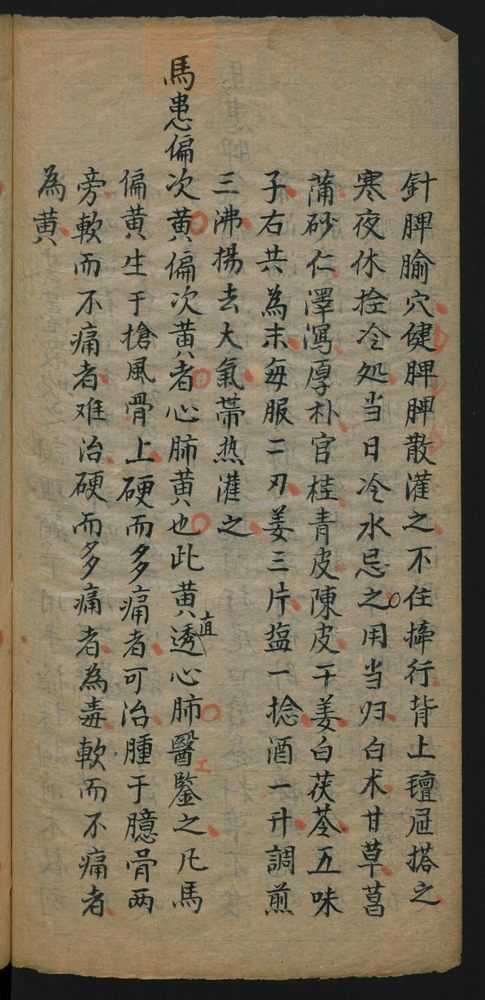 針脾腧穴健脾脾散灌之不住擵行背上氊屉搭之
寒夜休拴冷処当日冷水忌之用当归白术甘草菖
蒲砂仁澤瀉厚朴官桂青皮陳皮干姜白茯苓五味
子右共為末每服二刃姜三片塩一捻酒一升調煎
三沸揚去大氣帶热灌之
馬患偏次黄偏次黄者心肺黄也此黄直透心肺醫鑒之凡馬
偏黄生于搶風骨上硬而多痛者可治腫于臆骨两
旁軟而不痛者难治硬而多痛者為毒軟而不痛者
為黄